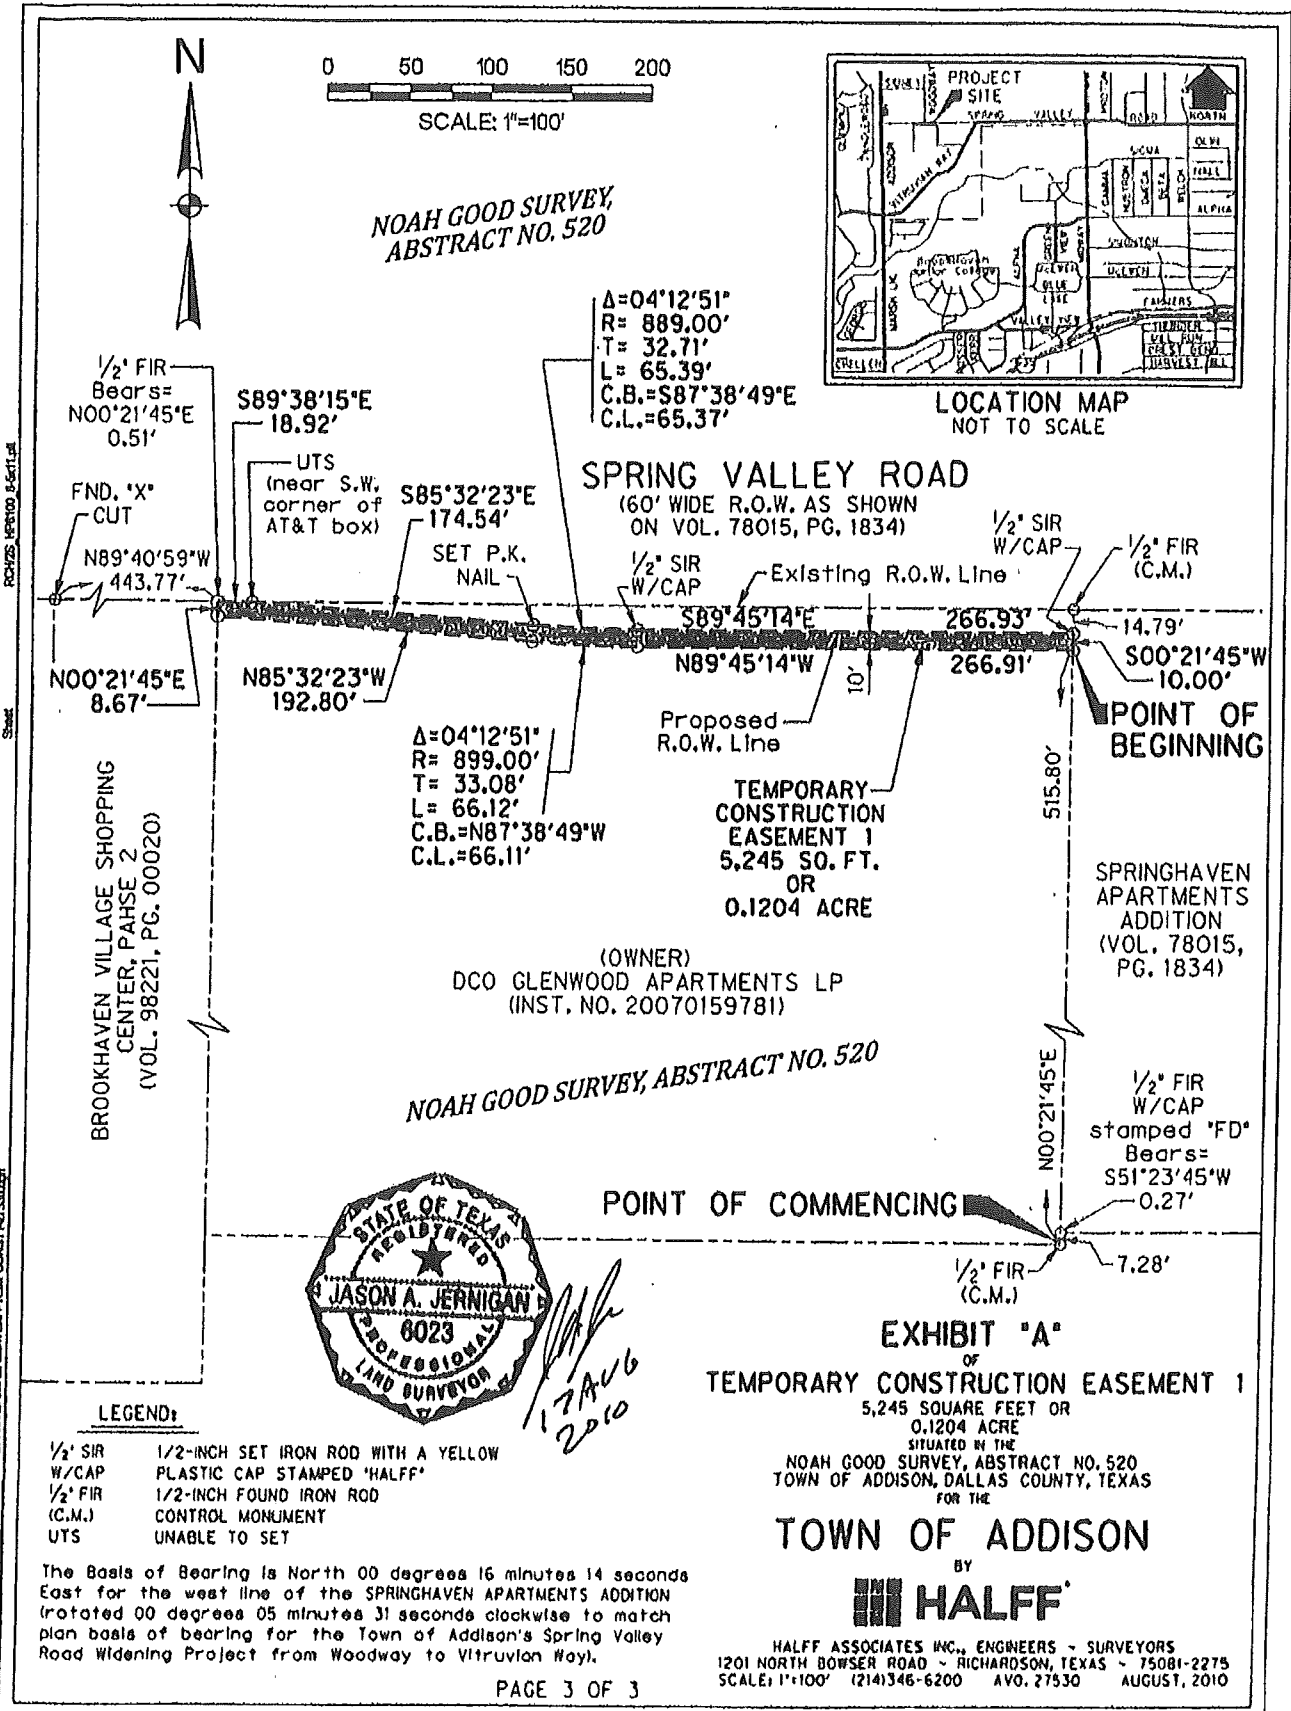 N
0 50 100 150 200
SCALE: 1"=100'
NOAH GOOD SURVEY,
ABSTRACT NO. 520
PROJECT
SITE
SPRING VALLEY ROAD
NORTH
SIGMA
ALPHA
VITRUVIAN WAY
MARSH LN.
ADDISON
WELCH
BETA
OMEGA
VALLEY VIEW
LOCATION MAP
NOT TO SCALE
Δ=04°12'51"
R= 889.00'
T= 32.71'
L= 65.39'
C.B.=S87°38'49"E
C.L.=65.37'
1/2" FIR
Bears=
N00°21'45"E
0.51'
S89°38'15"E
18.92'
FND. "X"
CUT
UTS
(near S.W.
corner of
AT&T box)
S85°32'23"E
174.54'
SPRING VALLEY ROAD
(60' WIDE R.O.W. AS SHOWN
ON VOL. 78015, PG. 1834)
N89°40'59"W
443.77'
SET P.K.
NAIL
1/2" SIR
W/CAP
Existing R.O.W. Line
1/2" SIR
W/CAP
1/2" FIR
(C.M.)
S89°45'14"E 266.93'
14.79'
N00°21'45"E
8.67'
N85°32'23"W
192.80'
N89°45'14"W 266.91'
10'
S00°21'45"W
10.00'
Proposed
R.O.W. Line
POINT OF
BEGINNING
Δ=04°12'51"
R= 899.00'
T= 33.08'
L= 66.12'
C.B.=N87°38'49"W
C.L.=66.11'
TEMPORARY
CONSTRUCTION
EASEMENT 1
5,245 SQ. FT.
OR
0.1204 ACRE
515.80'
BROOKHAVEN VILLAGE SHOPPING
CENTER, PAHSE 2
(VOL. 98221, PG. 00020)
SPRINGHAVEN
APARTMENTS
ADDITION
(VOL. 78015,
PG. 1834)
(OWNER)
DCO GLENWOOD APARTMENTS LP
(INST. NO. 20070159781)
NOAH GOOD SURVEY, ABSTRACT NO. 520
N00°21'45"E
1/2" FIR
W/CAP
stamped "FD"
Bears=
S51°23'45"W
0.27'
POINT OF COMMENCING
1/2" FIR
(C.M.)
7.28'
STATE OF TEXAS
REGISTERED
JASON A. JERNIGAN
6023
PROFESSIONAL
LAND SURVEYOR
17 AUG
2010
EXHIBIT "A"
OF
TEMPORARY CONSTRUCTION EASEMENT 1
5,245 SQUARE FEET OR
0.1204 ACRE
SITUATED IN THE
NOAH GOOD SURVEY, ABSTRACT NO. 520
TOWN OF ADDISON, DALLAS COUNTY, TEXAS
FOR THE
TOWN OF ADDISON
BY
HALFF
HALFF ASSOCIATES INC., ENGINEERS ~ SURVEYORS
1201 NORTH BOWSER ROAD ~ RICHARDSON, TEXAS ~ 75081-2275
SCALE: 1"=100' (214)346-6200 AVO. 27530 AUGUST, 2010
LEGEND:
1/2" SIR 1/2-INCH SET IRON ROD WITH A YELLOW
W/CAP PLASTIC CAP STAMPED "HALFF"
1/2" FIR 1/2-INCH FOUND IRON ROD
(C.M.) CONTROL MONUMENT
UTS UNABLE TO SET
The Basis of Bearing is North 00 degrees 16 minutes 14 seconds
East for the west line of the SPRINGHAVEN APARTMENTS ADDITION
(rotated 00 degrees 05 minutes 31 seconds clockwise to match
plan basis of bearing for the Town of Addison's Spring Valley
Road Widening Project from Woodway to Vitruvian Way).
PAGE 3 OF 3
Sheet